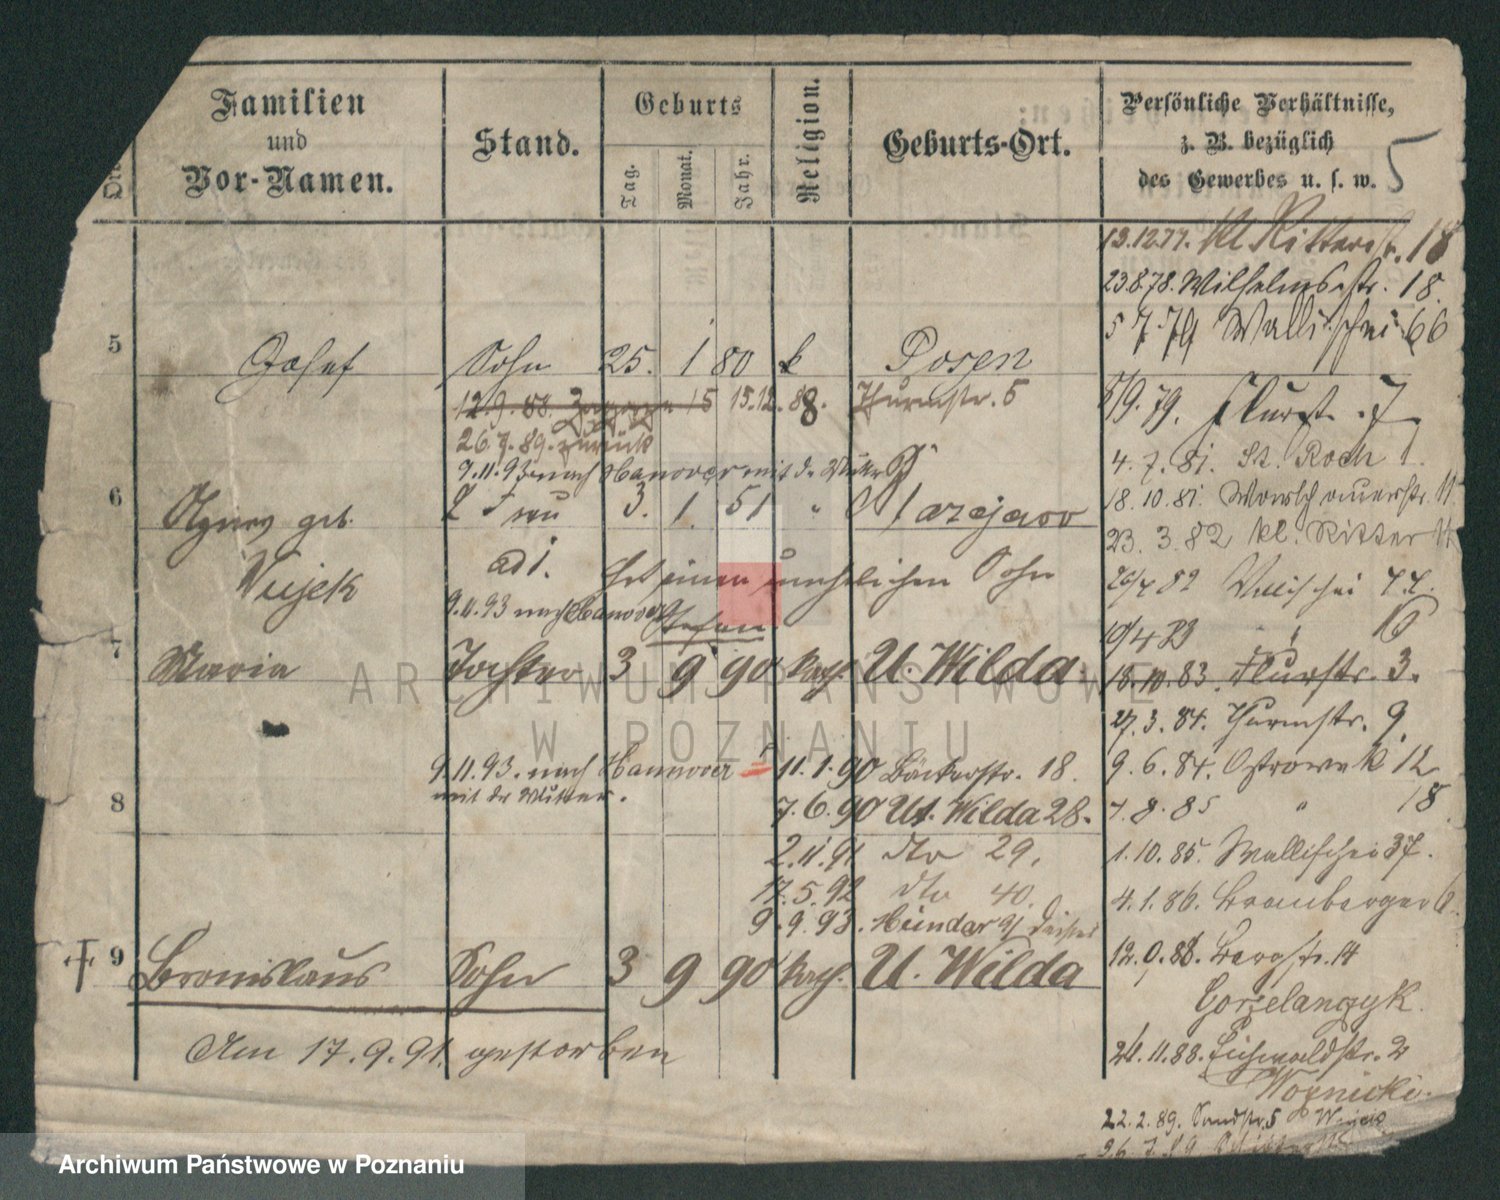 Familien
und
Vor-Namen.
Stand.
Geburts
Tag.
Monat.
Jahr.
Religion.
Geburts-Ort.
Persönliche Verhältnisse,
z. B. bezüglich
des Gewerbes u. s. w.
5
13.12.77. Kl Ritterstr. 18
23.8.78. Wilhelmsstr. 18.
5 7.79 Wallischei 66
5 Josef Sohn 25. 1 80 k Posen
12.9.88. 15 15.12.88. Thurmstr. 5
8/9.79. Flurst. 7
26.7.89. zurück
4.7.81. St. Roch 1.
9.11.93 nach Hanover mit d. Mutter
18.10.81. 11
6 Agnes geb. Frau 3. 1. 51 "
23.3.82 kl. Ritter 11
Wujek
hat einen unehelichen Sohn
9.11.93 nach Hanover
Stefan
19/4 83 " 16
7 Maria Tochter 3 9 90 kath. U. Wilda
18.10.83. Flurstr. 3.
27.3.84. Thurmstr. 9.
9.11.93. nach Hannover 11.1.90 Bäckerstr. 18.
9.6.84. Ostrowek 12
mit der Mutter.
8 7.6.90 Ut. Wilda 28.
7.8.85 " 18
2.11.91 dto 29.
1.10.85. Wallischei 37.
17.5.92 dto 40.
4.1.86. Bromberger 6.
9.9.93.
9 Bronislaus Sohn 3 9 90 kath. U. Wilda
Bergstr. 14
Gorzelanczyk.
Am 17.9.91. gestorben
24.11.88. Eichwaldstr. 2
Woznicki.
22.2.89. Sandstr. 5 Wujek
26.7.89
ARCHIWUM PAŃSTWOWE
W POZNANIU
Archiwum Państwowe w Poznaniu